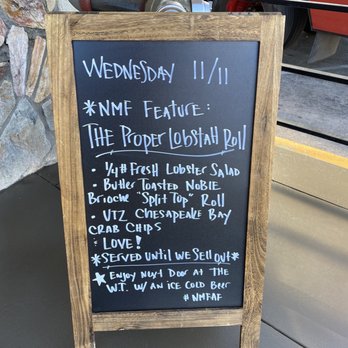 WEDNESDAY 11/11
*NMF FEATURE:
THE PROPER LOBSTAH ROLL
• 1/4# FRESH LOBSTER SALAD
• BUTTER TOASTED NOBLE
BRIOCHE "SPLIT TOP" ROLL
• UTZ CHESAPEAKE BAY
CRAB CHIPS
• LOVE!
*SERVED UNTIL WE SELL OUT*
* ENJOY NEXT DOOR AT THE
W.T. W/ AN ICE COLD BEER
#NMFAF